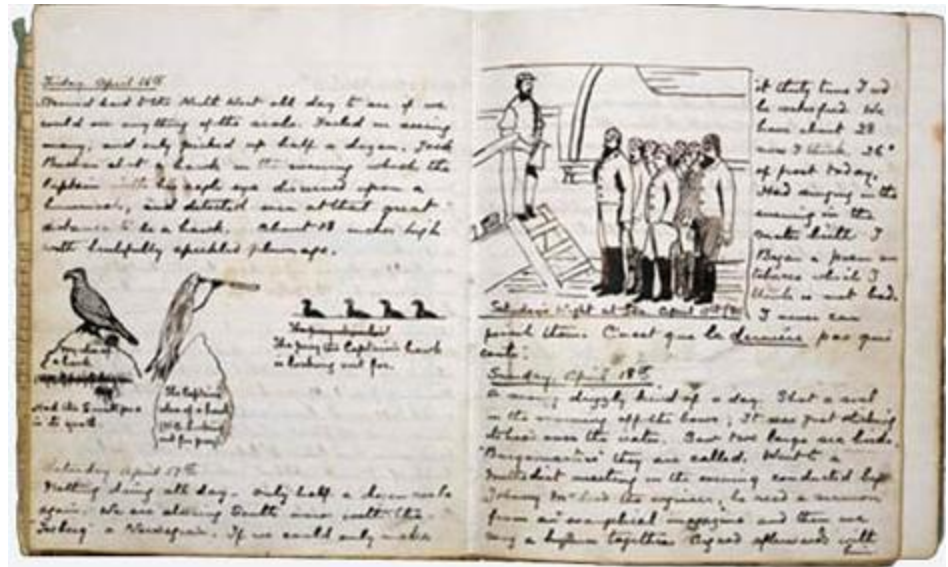 Friday April 16th
North West all day to see if we
could see anything of the seals. Failed in seeing
many, and only picked up half a dozen. Jack
shot a hawk in the evening which the
Captain with his eagle eye discerned upon a
hummock, and detected even at that great
distance to be a hawk. About 18 inches high
with beautifully speckled plumage.
idea of
a hawk
The Captain's
idea of a hawk
looking
out for prey
The prey the Captain's hawk
is looking out for.
Saturday April 17th
Nothing doing all day. Only half a dozen seals
again. We are steering South now with the
a Norwegian. If we could only make
Saturday Night at Sea April 17th
it thirty tons I would
be satisfied. We
have about 28
now I think. 26°
of frost today.
Had singing in the
evening in the
mate's berth. I
Began a poem on
tobacco which I
think is not bad.
I never can
finish them. C'est que la dernière pas qui
coute.
Sunday, April 18th
A drizzly kind of a day. Shot a seal
in the morning off the bows; It was just sticking
its head over the water. Saw two large sea birds.
"Burgomasters" they are called. Went to a
Methodist meeting in the evening conducted by
Johnny the engineer; he read a sermon
from an evangelical magazine and then we
sang a hymn together. Argued afterwards with
him